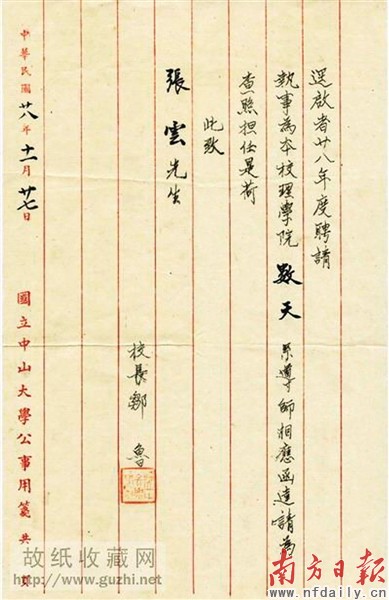 逕啟者廿八年度聘請
執事為本校理學院數天系導師相應函達請為
查照担任是荷
此致
張雲先生
校長鄒魯
中華民國廿八年十一月廿七日
國立中山大學公事用箋 共 頁
故纸收藏网
http://www.guzhi.net
南方日报
www.nfdaily.cn